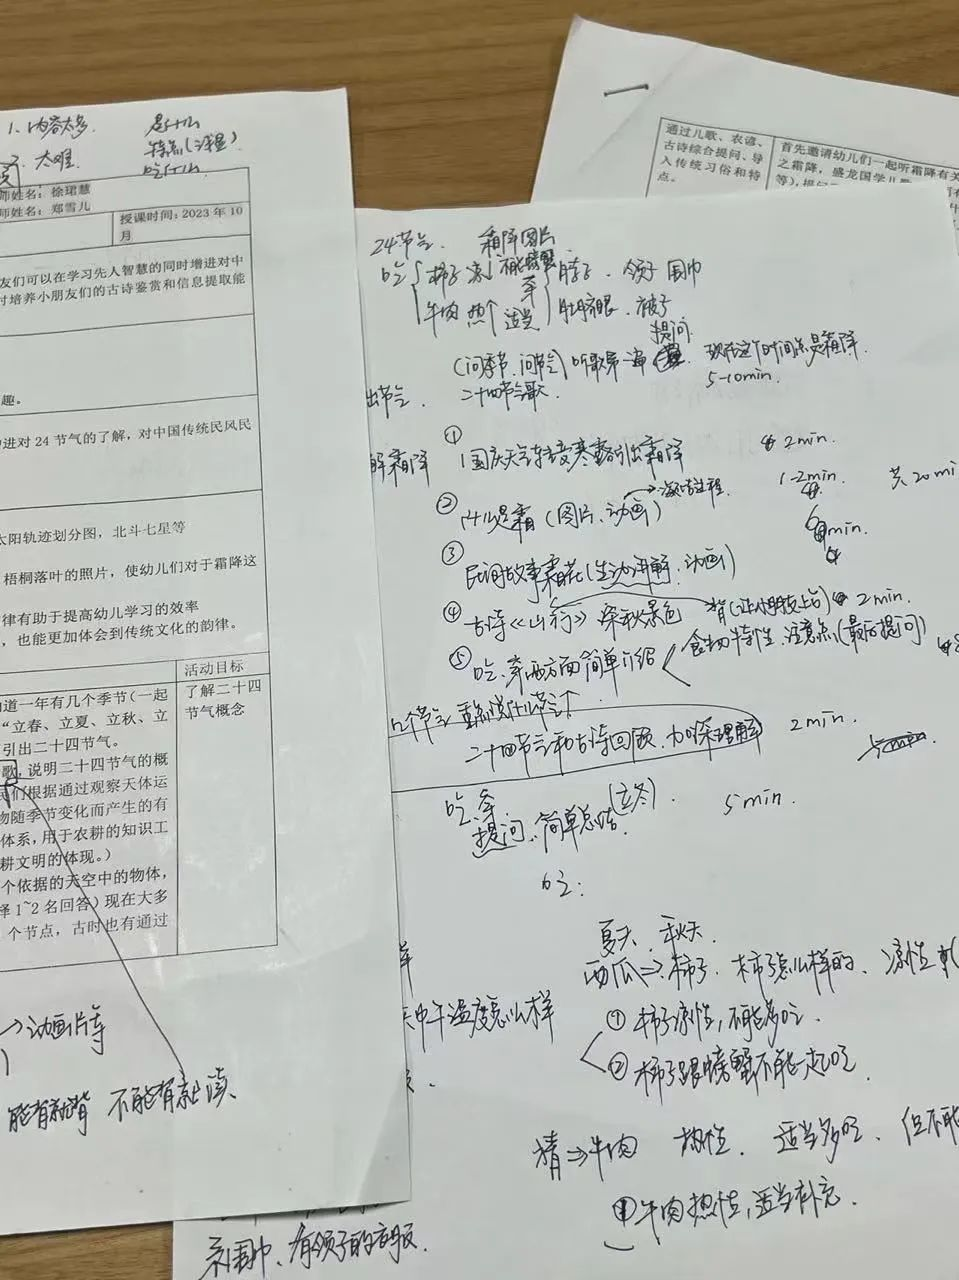 1、内容太多 是什么
2、太难 特点(浅显)
吃什么
师姓名：徐珺慧
师姓名：郑雪儿
授课时间：2023年10
月
友们可以在学习先人智慧的同时增进对中
时培养小朋友们的古诗鉴赏和信息提取能
趣。
进对24节气的了解，对中国传统民风民
太阳轨迹划分图，北斗七星等
梧桐落叶的照片，使幼儿们对于霜降这
律有助于提高幼儿学习的效率
，也能更加体会到传统文化的韵律。
活动目标
知道一年有几个季节（一起
“立春、立夏、立秋、立
引出二十四节气。
歌，说明二十四节气的概
民们根据通过观察天体运
物随季节变化而产生的有
体系，用于农耕的知识工
耕文明的体现。）
个依据的天空中的物体，
择1~2名回答）现在大多
个节点，古时也有通过
了解二十四
节气概念
→动画片等
能背就背 不能背就读
通过儿歌、农谚、
古诗综合提问、导
入传统习俗和特
点。
首先邀请幼儿们一起听霜降有关
之霜降，盛龙国学儿歌
24节气 霜降图片
吃 柿子 凉 不能螃蟹 脖子、领子 围巾
牛肉 热个 适当 穿 肚脐眼、被子
(问季节、问节气) 听歌第一遍 提问 现在这个时间点是霜降
出节气、 二十四节气歌 5-10min.
解霜降
① 国庆天气转变寒露引出霜降 2min.
② 什么是霜(图片、动画)→凝结过程 1-2min. 共20mi
③ 民间故事霜花(生动讲解、动画) min.
④ 古诗《山行》深秋景色 背(让小朋友上台) 2min.
⑤ 吃、穿两方面简单介绍 食物特性、注意点(最后提问)
几个节气 霜降是什么节气↑
二十四节气和古诗回顾、加深理解 2min.
5min.
吃、穿
提问、简单总结(立冬). 5min.
吃：
夏天、秋天
西瓜⇒柿子、柿子怎么样的、凉性
① 柿子凉性,不能多吃.
② 柿子跟螃蟹不能一起吃
样
天中午温度怎么样
猜⇒牛肉 热性、适当多吃、但不能
① 牛肉热性,适当补充.
系围巾、有领子的衣服.